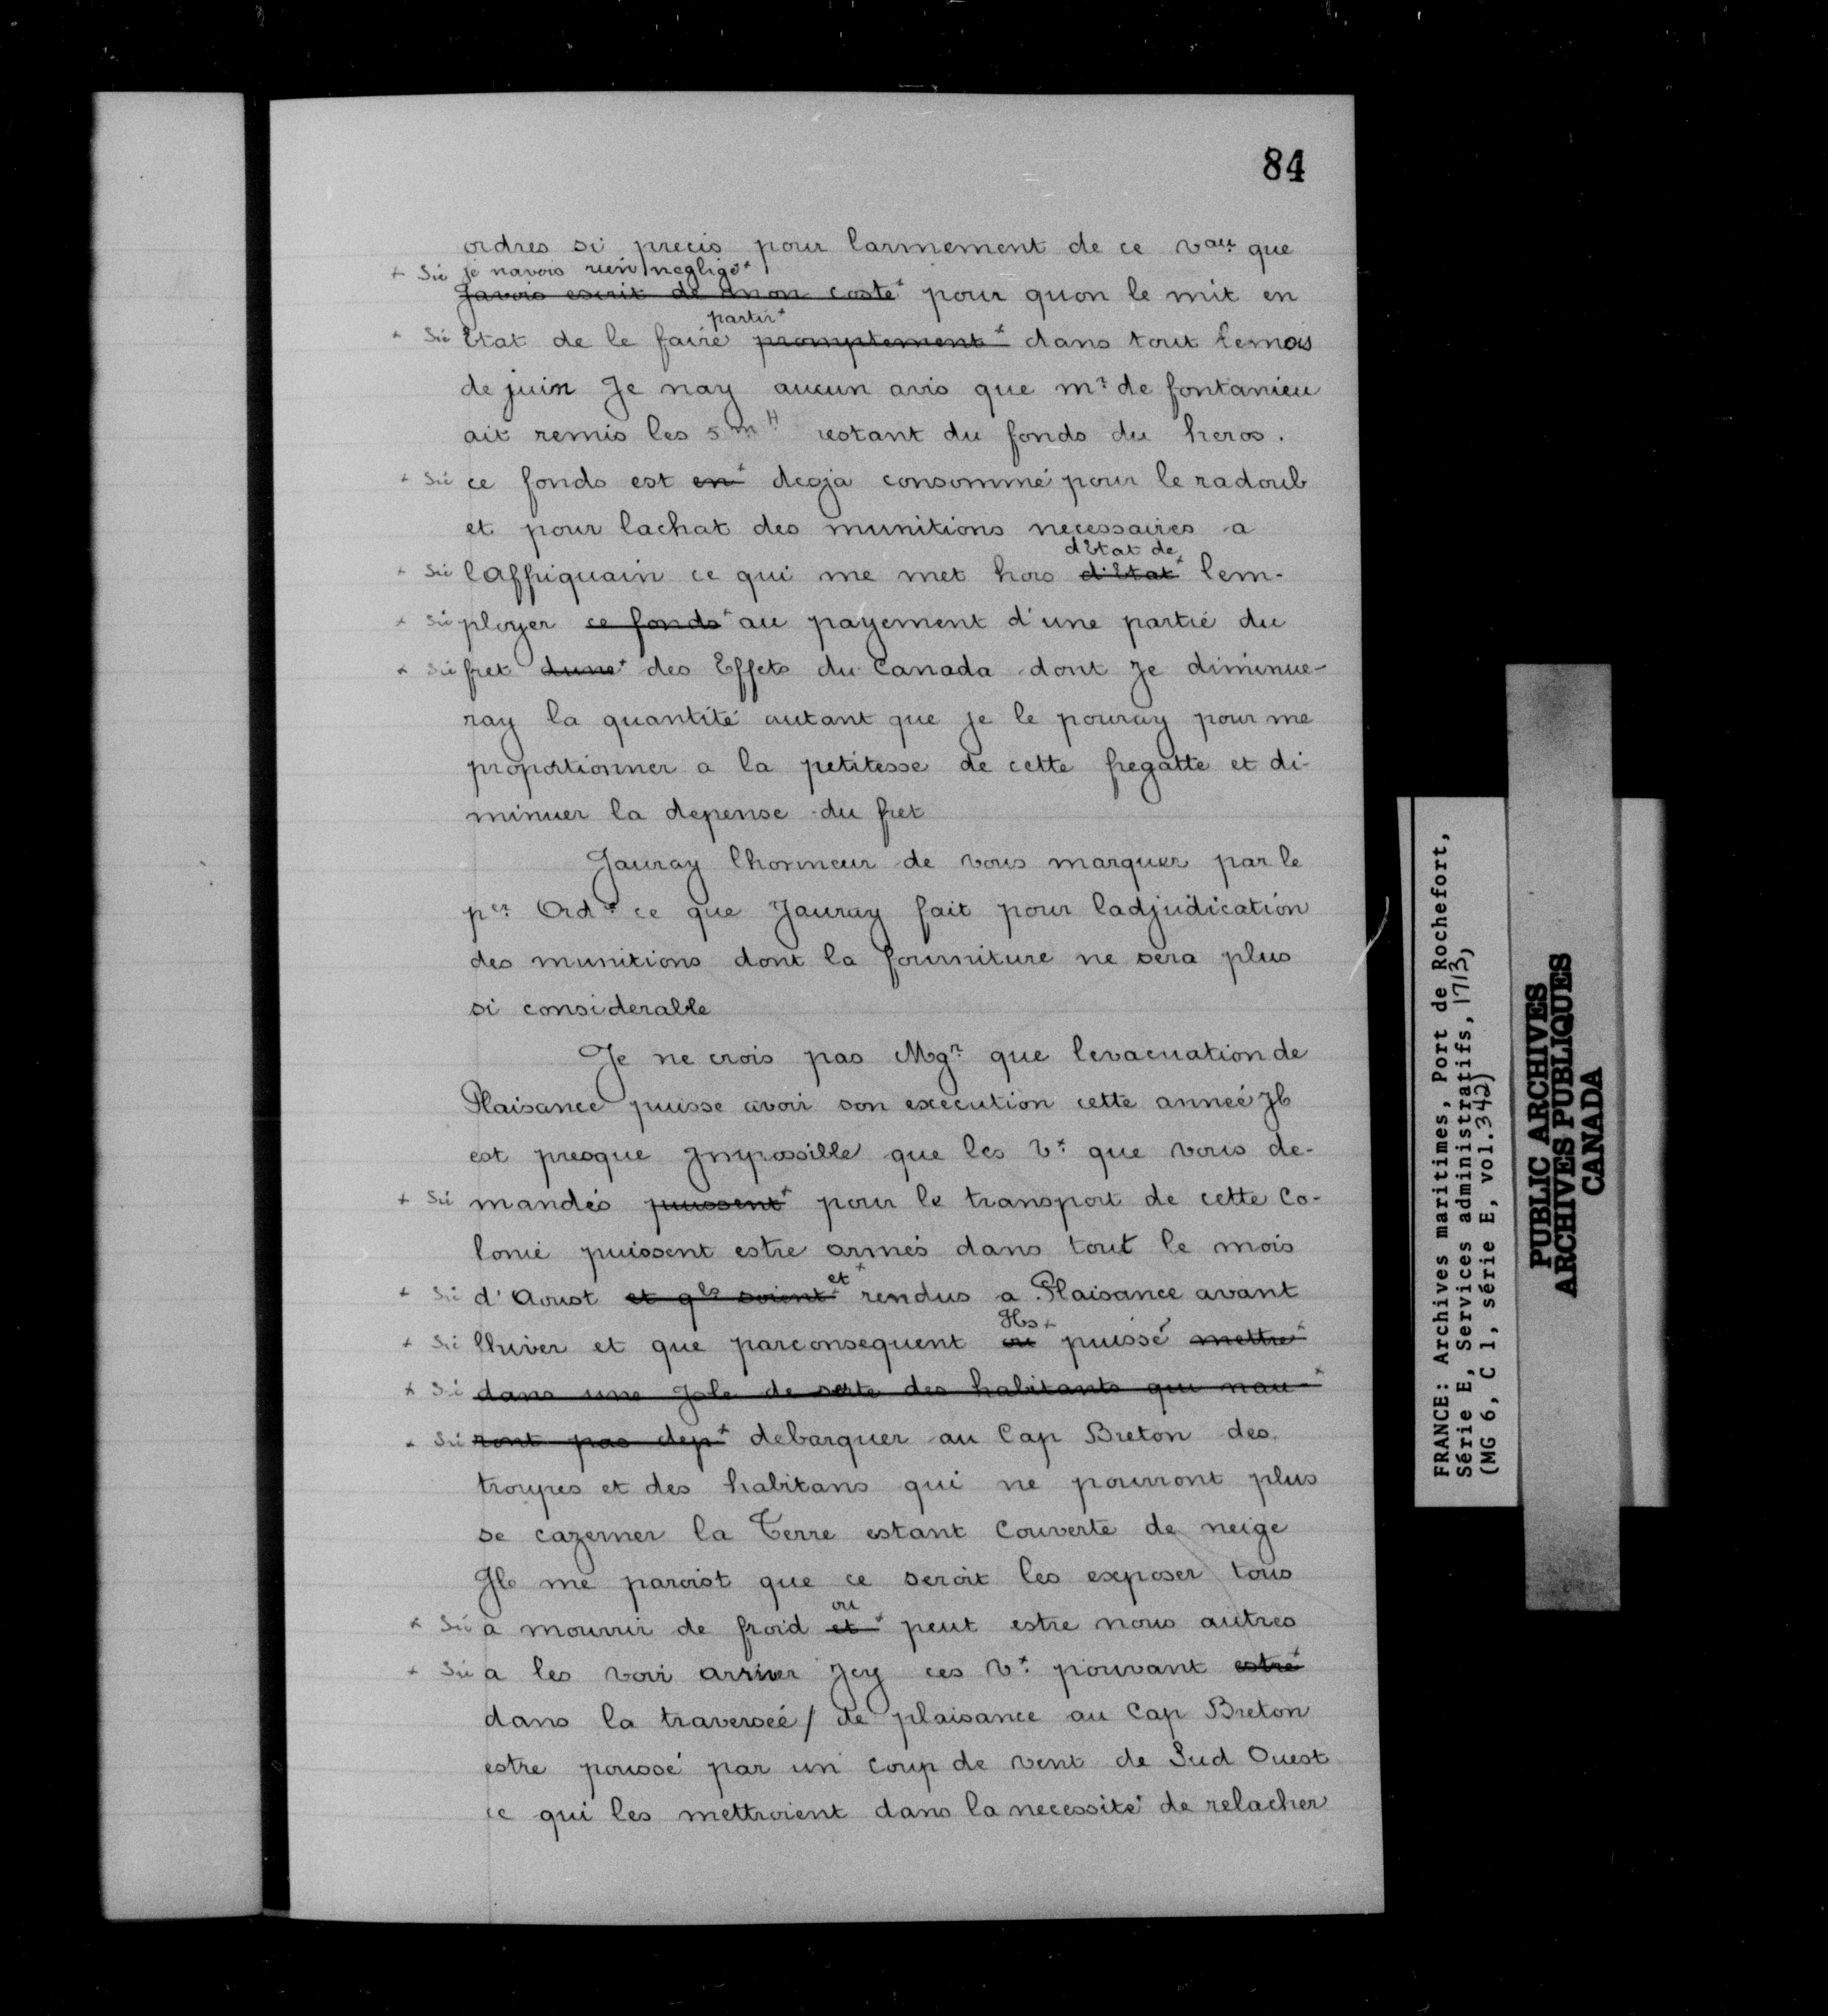 84
ordres si precis pour larmement de ce vau. que
+ Sic je navois rien neglige+
Javois escrit de mon coste+ pour quon le mit en
partir+
+ Sic Etat de le faire promptement+ dans tout lemois
de juin Je nay aucun avis que mr. de fontanieu
ait remis les 5m ₶ restant du fonds du heros.
+ Sic ce fonds est en+ desja consommé pour le radoub
et pour lachat des munitions necessaires a
dEtat de
+ Sic lAffriquain ce qui me met hors d'Etat+ lem-
+ Sic ployer ce fonds+ au payement d'une partie du
+ Sic fret dune+ des Effets du Canada dont Je diminue-
ray la quantité autant que je le pouray pour me
proportionner a la petitesse de cette fregatte et di-
minuer la depense du fret
Jauray lhonneur de vous marquer par le
per. Ordre ce que Jauray fait pour ladjudication
des munitions dont la fourniture ne sera plus
si considerable
Je ne crois pas Mgr. que levacuation de
Plaisance puisse avoir son execution cette année Jl
est presque Jmpossible que les vx. que vous de-
+ Sic mandés puissent+ pour le transport de cette Co-
lonie puissent estre armés dans tout le mois
et+
+ Sic d'Aoust et qls soient+ rendus a Plaisance avant
Ils+
+ Sic lhiver et que parconsequent on puisse mettre+
+ Sic dans une Jsle deserte des habitants qui nau-+
+ Sic ront pas dep+ debarquer au Cap Breton des
troupes et des habitans qui ne pourront plus
se cazerner la Terre estant Couverte de neige
Jl me paroist que ce seroit les exposer tous
ou
+ Sic à mourrir de froid et+ peut estre nous autres
+ Sic a les voir arriver Jcy ces vx. pouvant estre+
dans la traversée / de plaisance au Cap Breton
estre poussé par un coup de vent de Sud Ouest
ce qui les mettroient dans la necessité de relacher
FRANCE: Archives maritimes, Port de Rochefort,
Série E, Services administratifs, 1713,
(MG 6, C 1, série E, vol.342)
PUBLIC ARCHIVES
ARCHIVES PUBLIQUES
CANADA